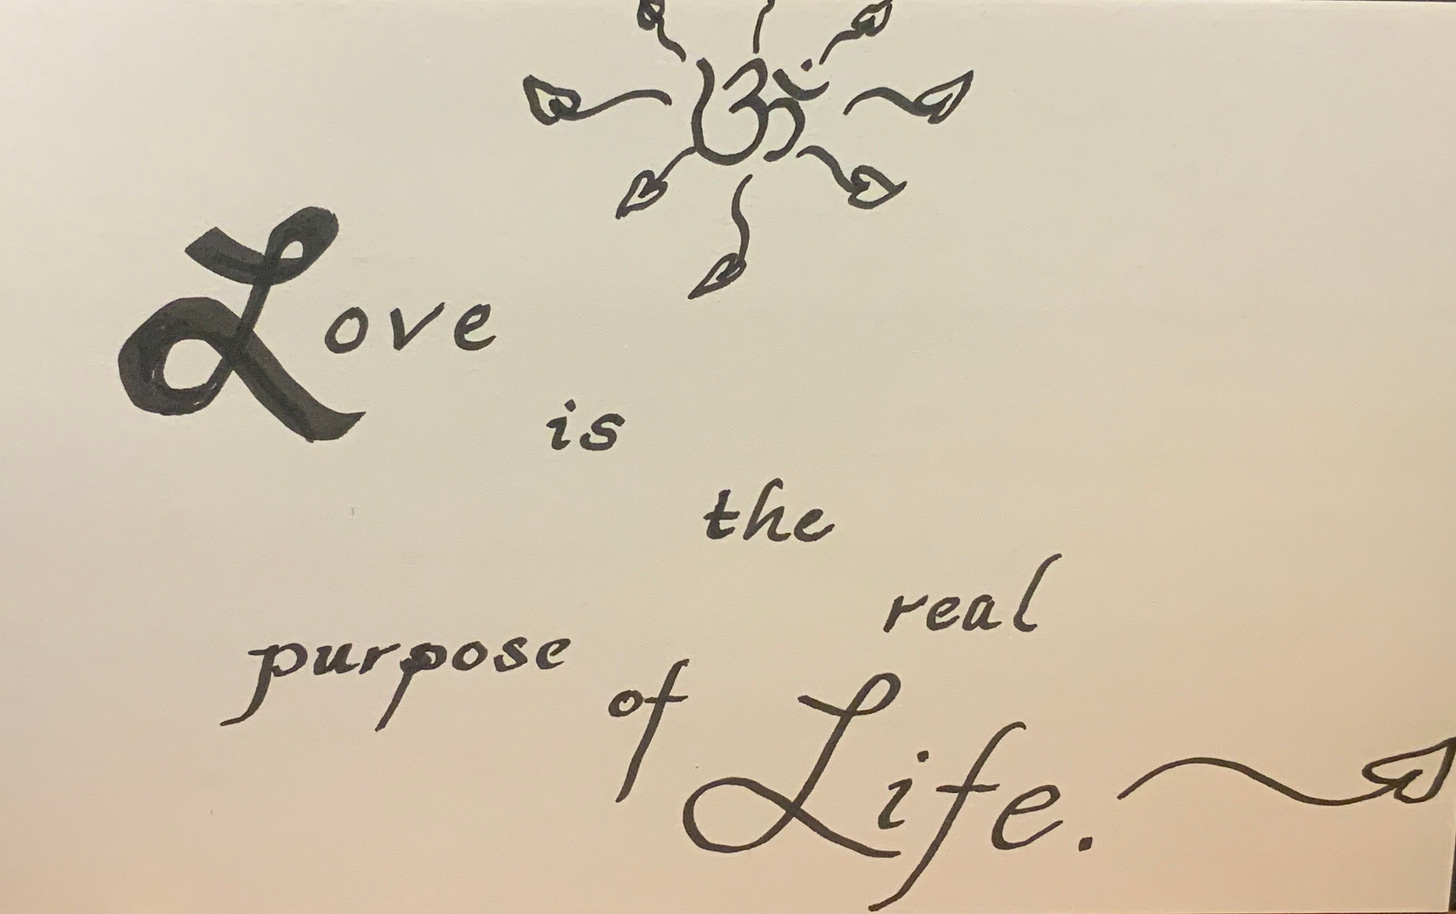 ॐ
Love
is
the
real
purpose
of Life.